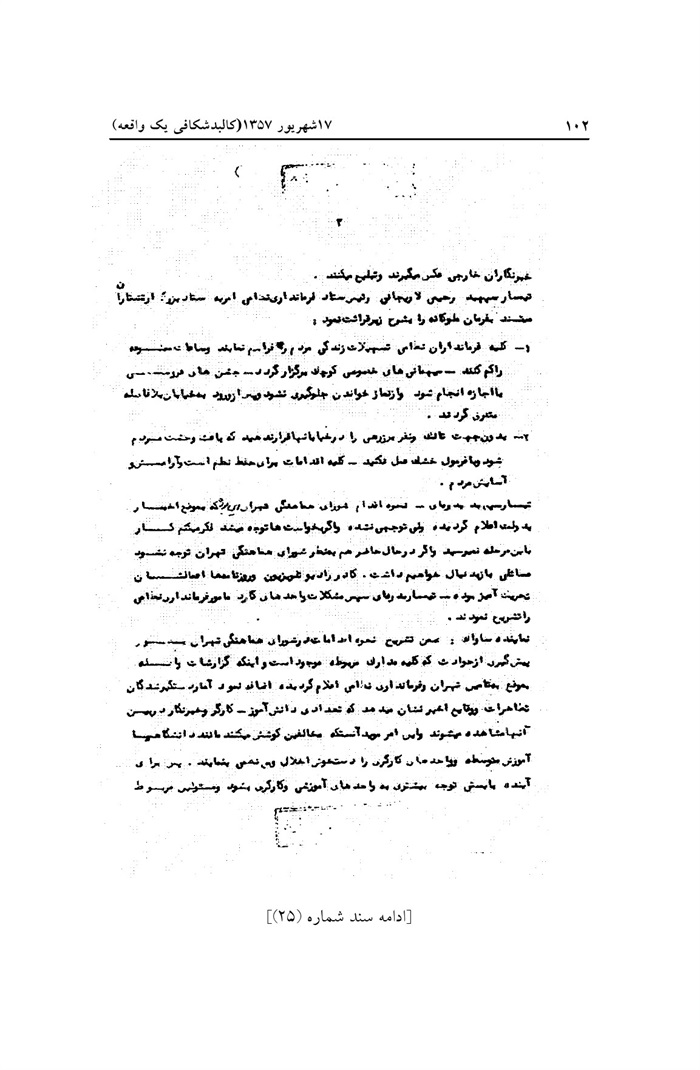 ۱۰۲ ۱۷شهریور ۱۳۵۷(کالبدشکافی یک واقعه)
۲
خبرنگاران خارجی عکس میگیرند وتبلیغ میکنند .
تیمسار سپهبد رحیمی لاریجانی رئیس ستاد فرمانداری نظامی امریه ستاد بزرگ ارتشتاران
مبتنی بفرمان ملوکانه را بشرح زیر قرائت نمود :
۱- کلیه فرمانداران نظامی تسهیلات زندگی مردم را فراهم نمایند وساعات ممنوعه
راکم کنند - میهمانی های خصوصی کوچک برگزار گردد - جشن های عروسی
با اجازه انجام شود وازنماز خواندن جلوگیری نشود وپس ازورود به خیابان بلافاصله
متفرق گردند .
۲- بدون جهت تانک ونفر بر زرهی را درخیابانها قرارندهید که باعث وحشت مردم
شود وبا فرمول خشک عمل نکنید - کلیه اقدامات برای حفظ نظم است وآرامش و
آسایش مردم .
تیمسار سپهبد - نحوه اقدام شورای هماهنگی تهران که بموقع اخبار
بدولت اعلام گردیده ولی توجهی نشده واگربخواست ها توجه میشد فکر میکنم کار
باین مرحله نمیرسید واگر درحال حاضر هم بنظر شورای هماهنگی تهران توجه نشود
مسائلی بازبدنبال خواهیم داشت . کادر رادیو تلویزیون وروزنامه ها اعمالشان
تحریک آمیز بوده - تیمسار سپس مشکلات واحدهای کادر مامور فرمانداری نظامی
را تشریح نمودند .
نماینده ساواک : ضمن تشریح نحوه اقدامات درشورای هماهنگی تهران بمنظور
پیش گیری ازحوادث که کلیه مدارک مربوطه موجود است و اینکه گزارشات واصله
بموقع بمقامات تهران وفرمانداری نظامی اعلام گردیده اضافه نمود آمار دستگیرشدگان
تظاهرات ووقایع اخیر نشان میدهد که تعدادی دانش آموز - کارگر وخبرنگار دربین
آنها مشاهده میشوند واین امر موید آنستکه مخالفین کوشش میکنند مانند دانشگاهها
آموزش متوسطه وواحدهای کارگری را دستخوش اخلال وبی نظمی بنمایند . پس برای
آینده بایستی توجه بیشتری به واحدهای آموزشی وکارگری بشود ومسئولین مربوط
[ادامه سند شماره (۲۵)]